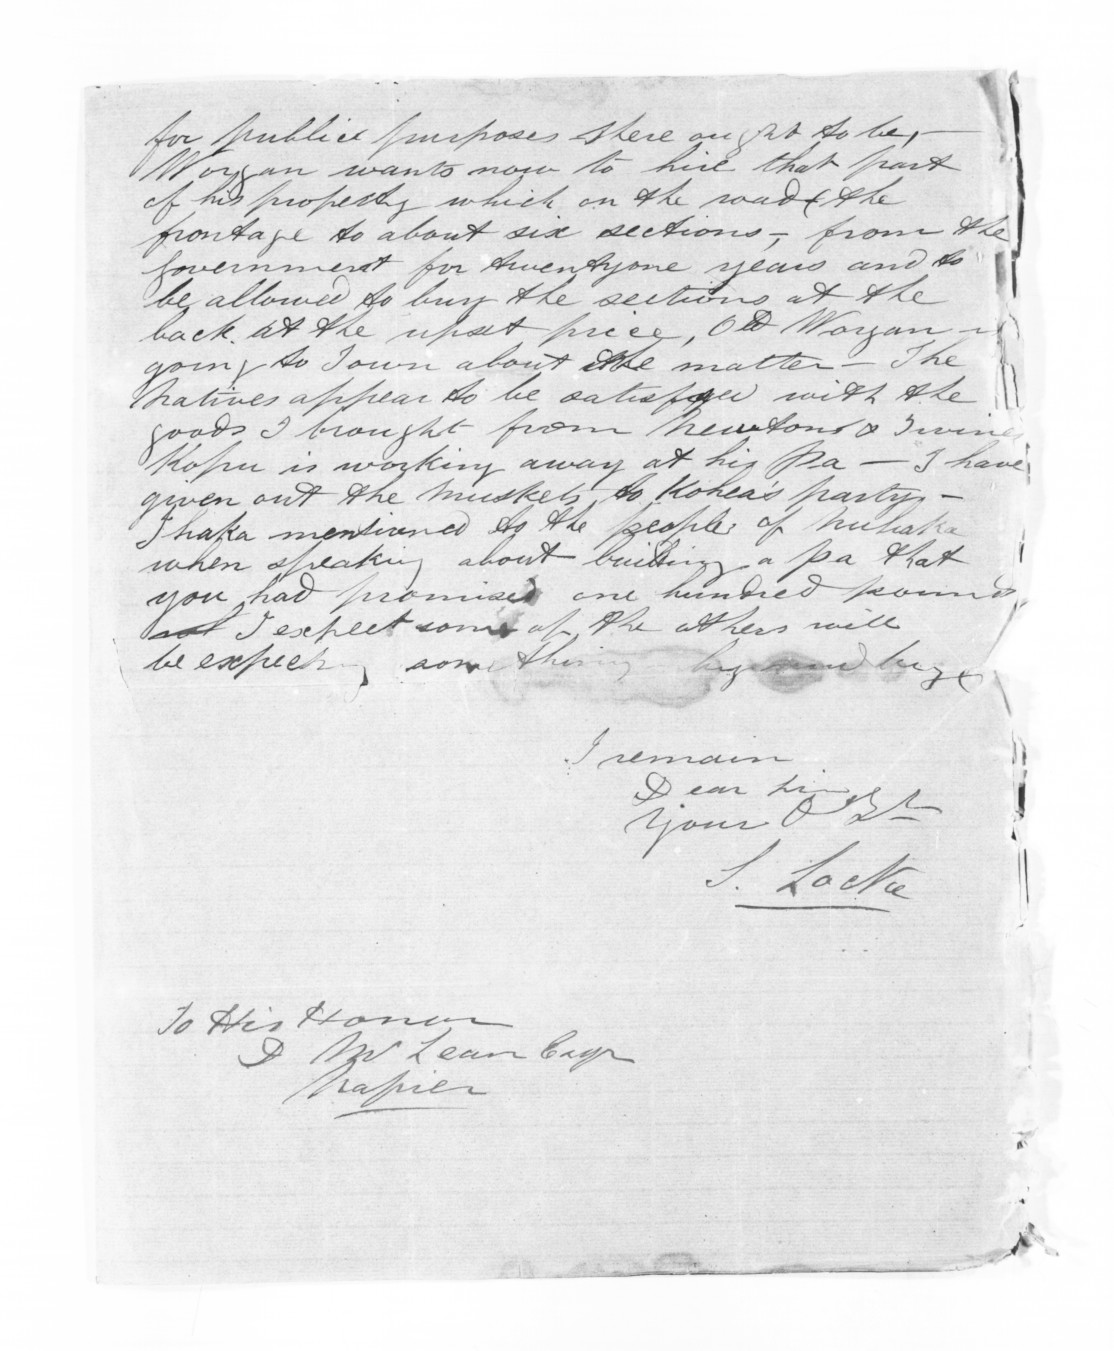 for publick purposes there ought to be, –
Worgan wants now to hire that part
of his property which on the road & the
frontage to about six sections –, from the
Government for twentyone years and to
be allowed to buy the sections at the
back at the upset price, Old Worgan is
going to Town about the matter – The
Natives appear to be satisfyed with the
goods I brought from Newtons & Irvines
Kopu is working away at his Pa – I have
given out the muskets to Kohea's party, –
Ihaka mentioned to the people of Nuhaka
when speaking about building a Pa that
you had promised one hundred pounds
I expect some of the others will
be expecting something by and by
I remain
Dear Sir
Your Obt St
S. Locke
To His Honor
D McLean Esqr
Napier